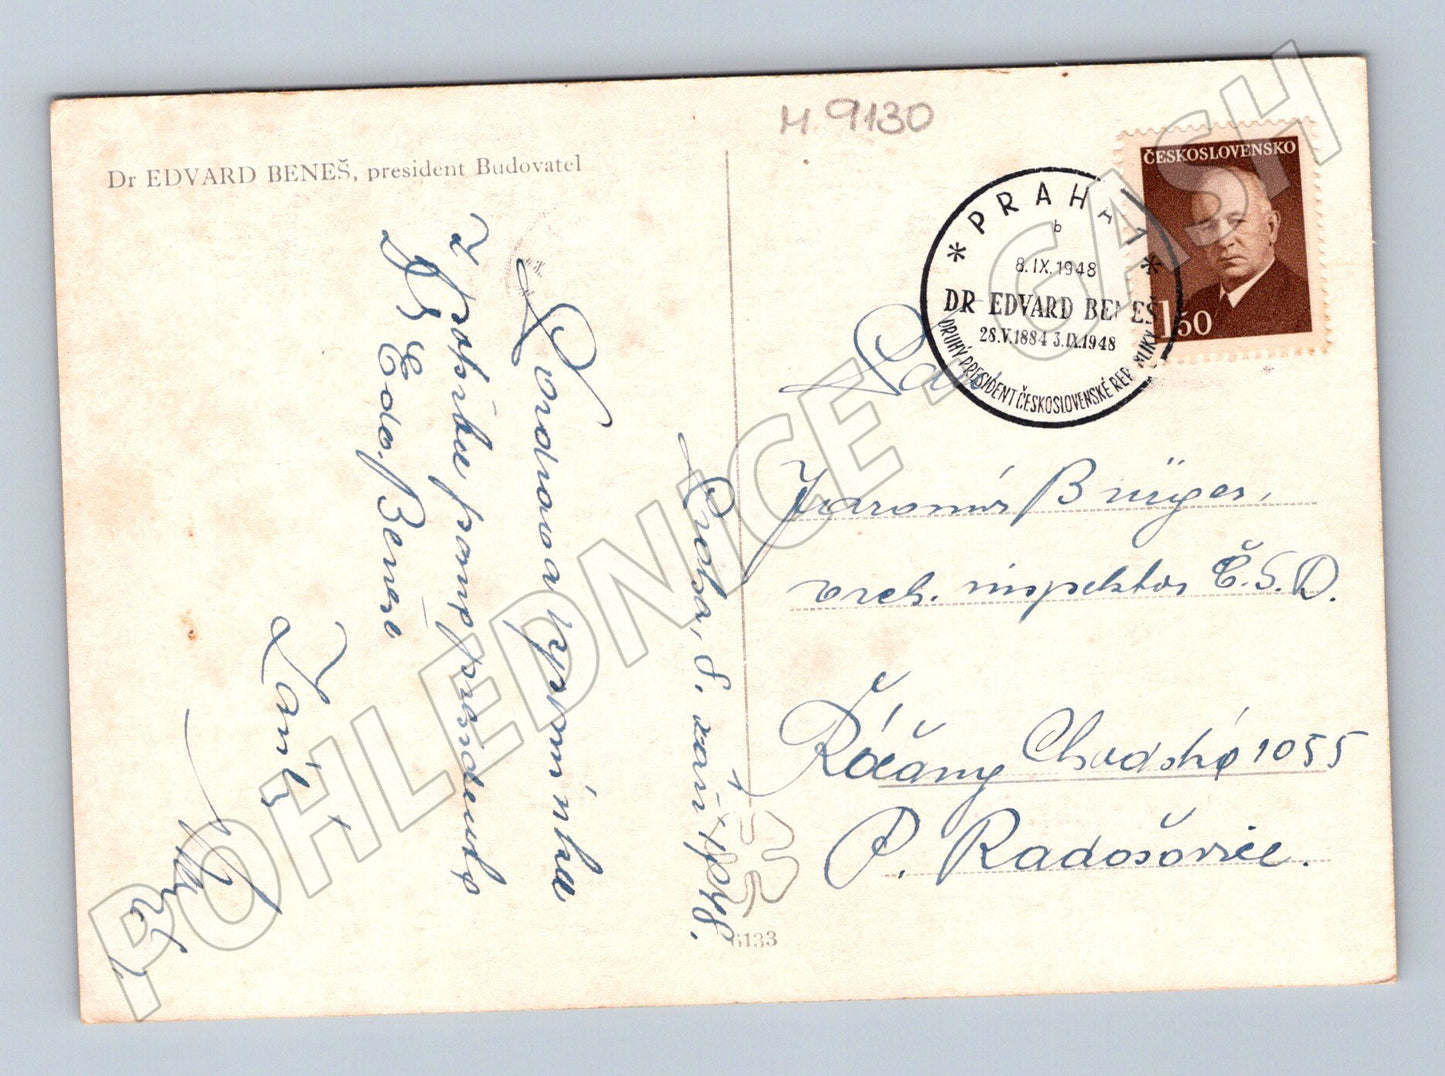 M 9130
Dr EDVARD BENEŠ, president Budovatel
ČESKOSLOVENSKO
1.50
PRAHA 1
b
8.IX.1948
DR EDVARD BENEŠ
28.V.1884 3.IX.1948
DRUHÝ PRESIDENT ČESKOSLOVENSKÉ REPUBLIKY
Praha, 8. září 1948.
vzpomínka
z pohřbu pana presidenta
Dr Edv. Beneše
Pan
Jaromír Bürger,
vrch. inspektor Č.S.D.
Říčany Chodská 1055
P. Radošovice.
6133
POHLEDNICE - CASH